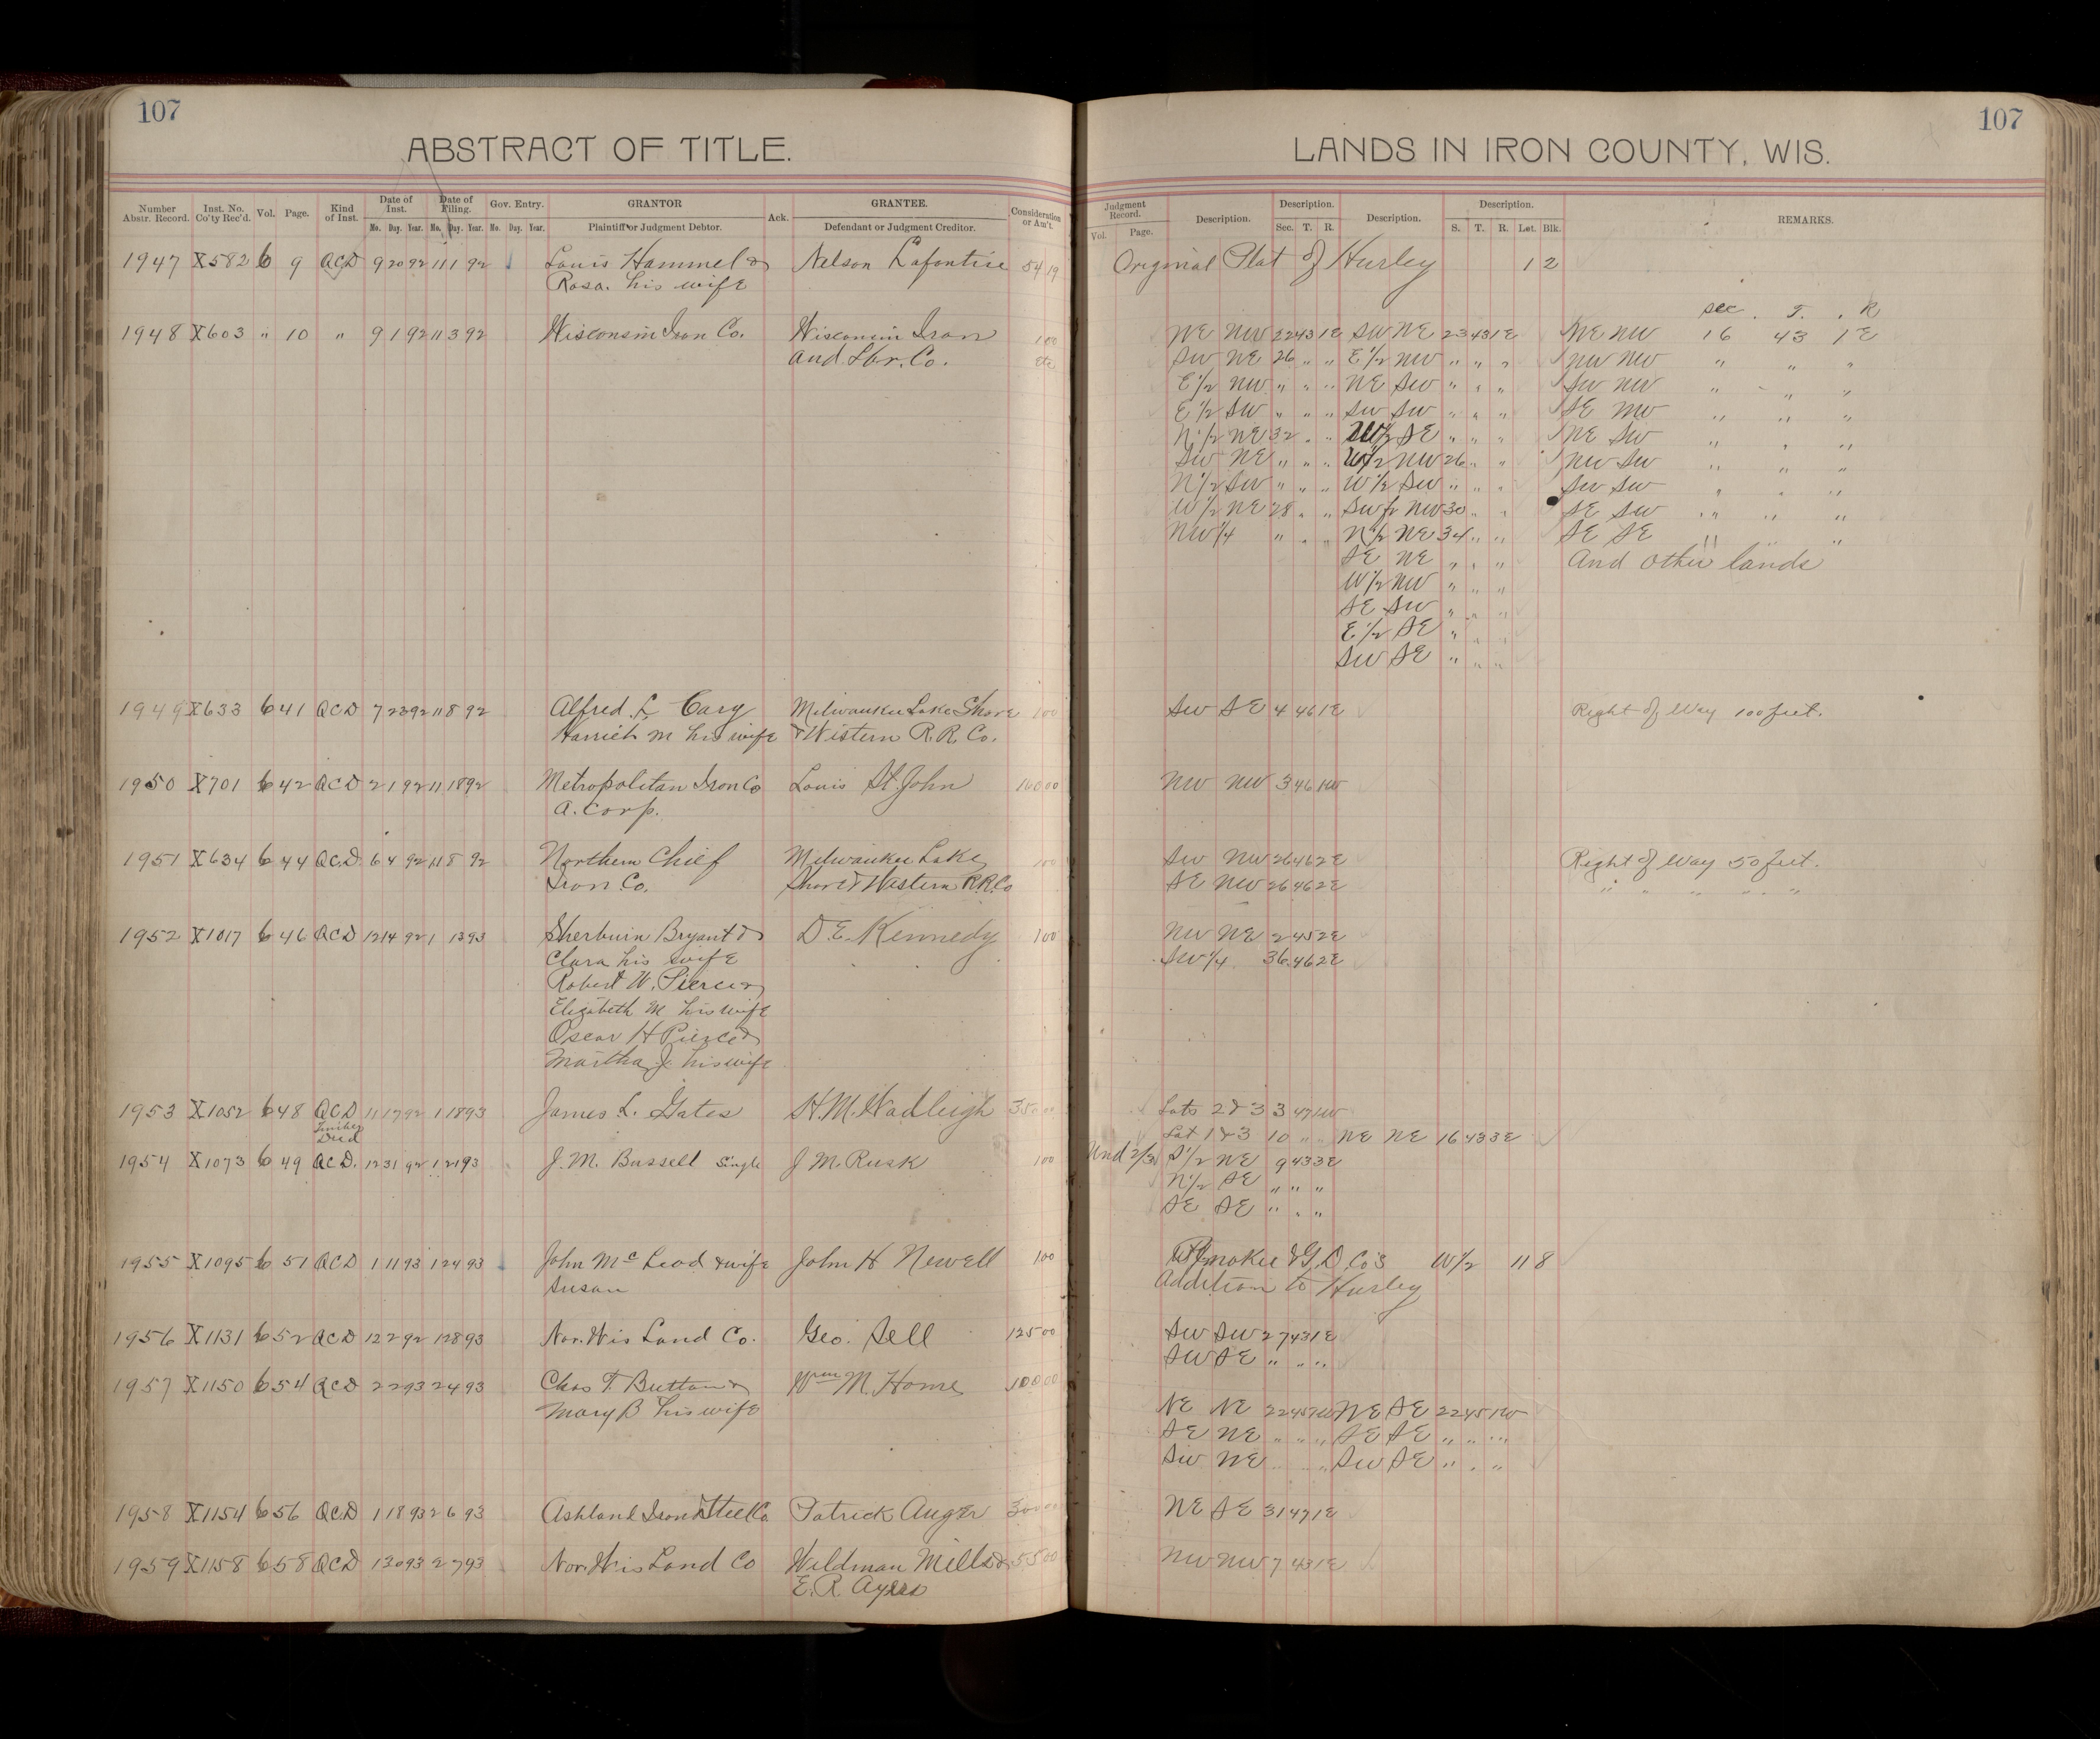 107
ABSTRACT OF TITLE.
Number Abstr. Record. Inst. No. Co'ty Rec'd. Vol. Page. Kind of Inst. Date of Inst. Date of Filing. Gov. Entry. GRANTOR Ack. GRANTEE. Consideration or Am't.
Mo. Day. Year. Mo. Day. Year. Mo. Day. Year. Plaintiff or Judgment Debtor. Defendant or Judgment Creditor.
1947 X582 6 9 QCD 9 20 92 11 1 92 Louis Hammel & Nelson Lafontise 54 19
Rosa. his wife
1948 X603 " 10 " 9 1 92 11 3 92 Wisconsin Iron Co. Wisconsin Iron 1 00
and Lbr. Co. Etc
1949 X633 6 41 QCD 7 23 92 11 8 92 Alfred L Cary Milwaukee Lake Shore 1 00
Harriet M his wife & Western R.R. Co.
1950 X701 6 42 QCD 2 1 92 11 18 92 Metropolitan Iron Co Louis St. John
A. Corp.
1951 X634 6 44 QCD 6 4 92 11 8 92 Northern Chief Milwaukee Lake 1 00
Iron Co. Shore & Western R.R. Co
1952 X1017 6 46 QCD 12 14 92 1 13 93 Sherburn Bryant & D. E. Kennedy 1 00
Clara his wife
Robert W. Pierce &
Elizabeth M his wife
Oscar H Pierce &
Martha J. his wife
1953 X1052 6 48 QCD 11 17 92 1 18 93 James L. Gates H. M. Hadleigh
Timber
Deed
1954 X1073 6 49 QCD. 12 31 92 1 21 93 J. M. Bussell Single J M. Rusk 1 00
1955 X1095 6 51 QCD 1 11 93 1 24 93 John McLeod & wife John H Newell 1 00
Susan
1956 X1131 6 52 QCD 12 2 92 1 28 93 Nor. Wis Land Co. Geo. Sell 125 00
1957 X1150 6 54 QCD 2 2 93 2 4 93 Chas T. Button & Wm M. Home 100 00
Mary B his wife
1958 X1154 6 56 QCD 1 18 93 2 6 93 Ashland Iron & Steel Co. Patrick Auger 300 00
1959 X1158 6 58 QCD 1 30 93 2 7 93 Nor. Wis Land Co Wildman Mills & 55 00
E. R. Ayers
107
LANDS IN IRON COUNTY, WIS.
Judgment Record. Description. Description. Description. Description. REMARKS.
Vol. Page. Sec. T. R. S. T. R. Lot. Blk.
Original Plat of Hurley 1 2
Sec. T. R
NE NW 22 43 1E SW NE 23 43 1E NE NW 16 43 1E
SW NE 26 " " E 1/2 NW " " " NW NW " " "
E 1/2 NW " " " NE SW " " " SW NW " " "
E 1/2 SW " " " SW SW " " " SE NW " " "
N 1/2 NE 32 " " W 1/2 SE " " " NE SW " " "
SW NE " " " W 1/2 NW 26 " " NW SW " " "
N 1/2 SW " " " W 1/2 SW " " " SW SW " " "
W 1/2 NE 28 " " NW 30 " " SE SW " " "
NW 1/4 " " " N 1/2 NE 34 " " SE SE " " "
SE NE " " " And other lands
W 1/2 NW " " "
SE SW " " "
E 1/2 SE " " "
SW SE " " "
SW SE 4 46 1E Right of Way 100 feet.
NW NW 3 46 1W
SW NW 26 46 2E Right of Way 50 feet.
SE NW 26 46 2E " " " " "
NW NE 2 45 2E
SW 1/4 36 46 2E
Lots 2 & 3 3 47 1W
Lot 1 & 3 10 " " NE NE 16 43 3E
Und 2/3 S 1/2 NE 9 43 3E
N 1/2 SE " " "
SE SE " " "
& G. D. Co's W 1/2 11 8
Addition to Hurley
SW SW 27 43 1E
SW SE " " "
NE NE 22 45 1W NE SE 22 45 1W
SE NE " " " SE SE " " "
SW NE " " SW SE " " "
NE SE 31 47 1E
NW NW 7 43 1E